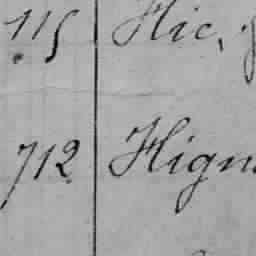 115 Hic,
712 Hign